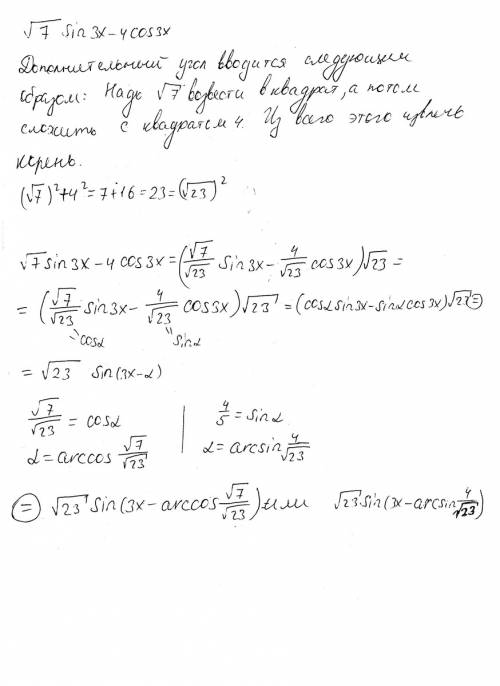 √7 sin3x-4cos3x
Дополнительный угол вводится следующим
образом: Надо √7 возвести в квадрат, а потом
сложить с квадратом 4. Из всего этого извлечь
корень.
(√7)²+4²=7+16=23=(√23)²
√7sin3x-4cos3x=(√7/√23 sin3x-4/√23 cos3x)√23=
=(√7/√23 sin3x-4/√23 cos3x)√23=(cosα sin3x-sinα cos3x)√23=
"cosα "sinα
=√23 sin(3x-α)
√7/√23=cosα | 4/5=sinα
α=arccos √7/√23 | α=arcsin 4/√23
= √23 sin(3x-arccos √7/√23) или √23 sin(3x-arcsin 4/√23)